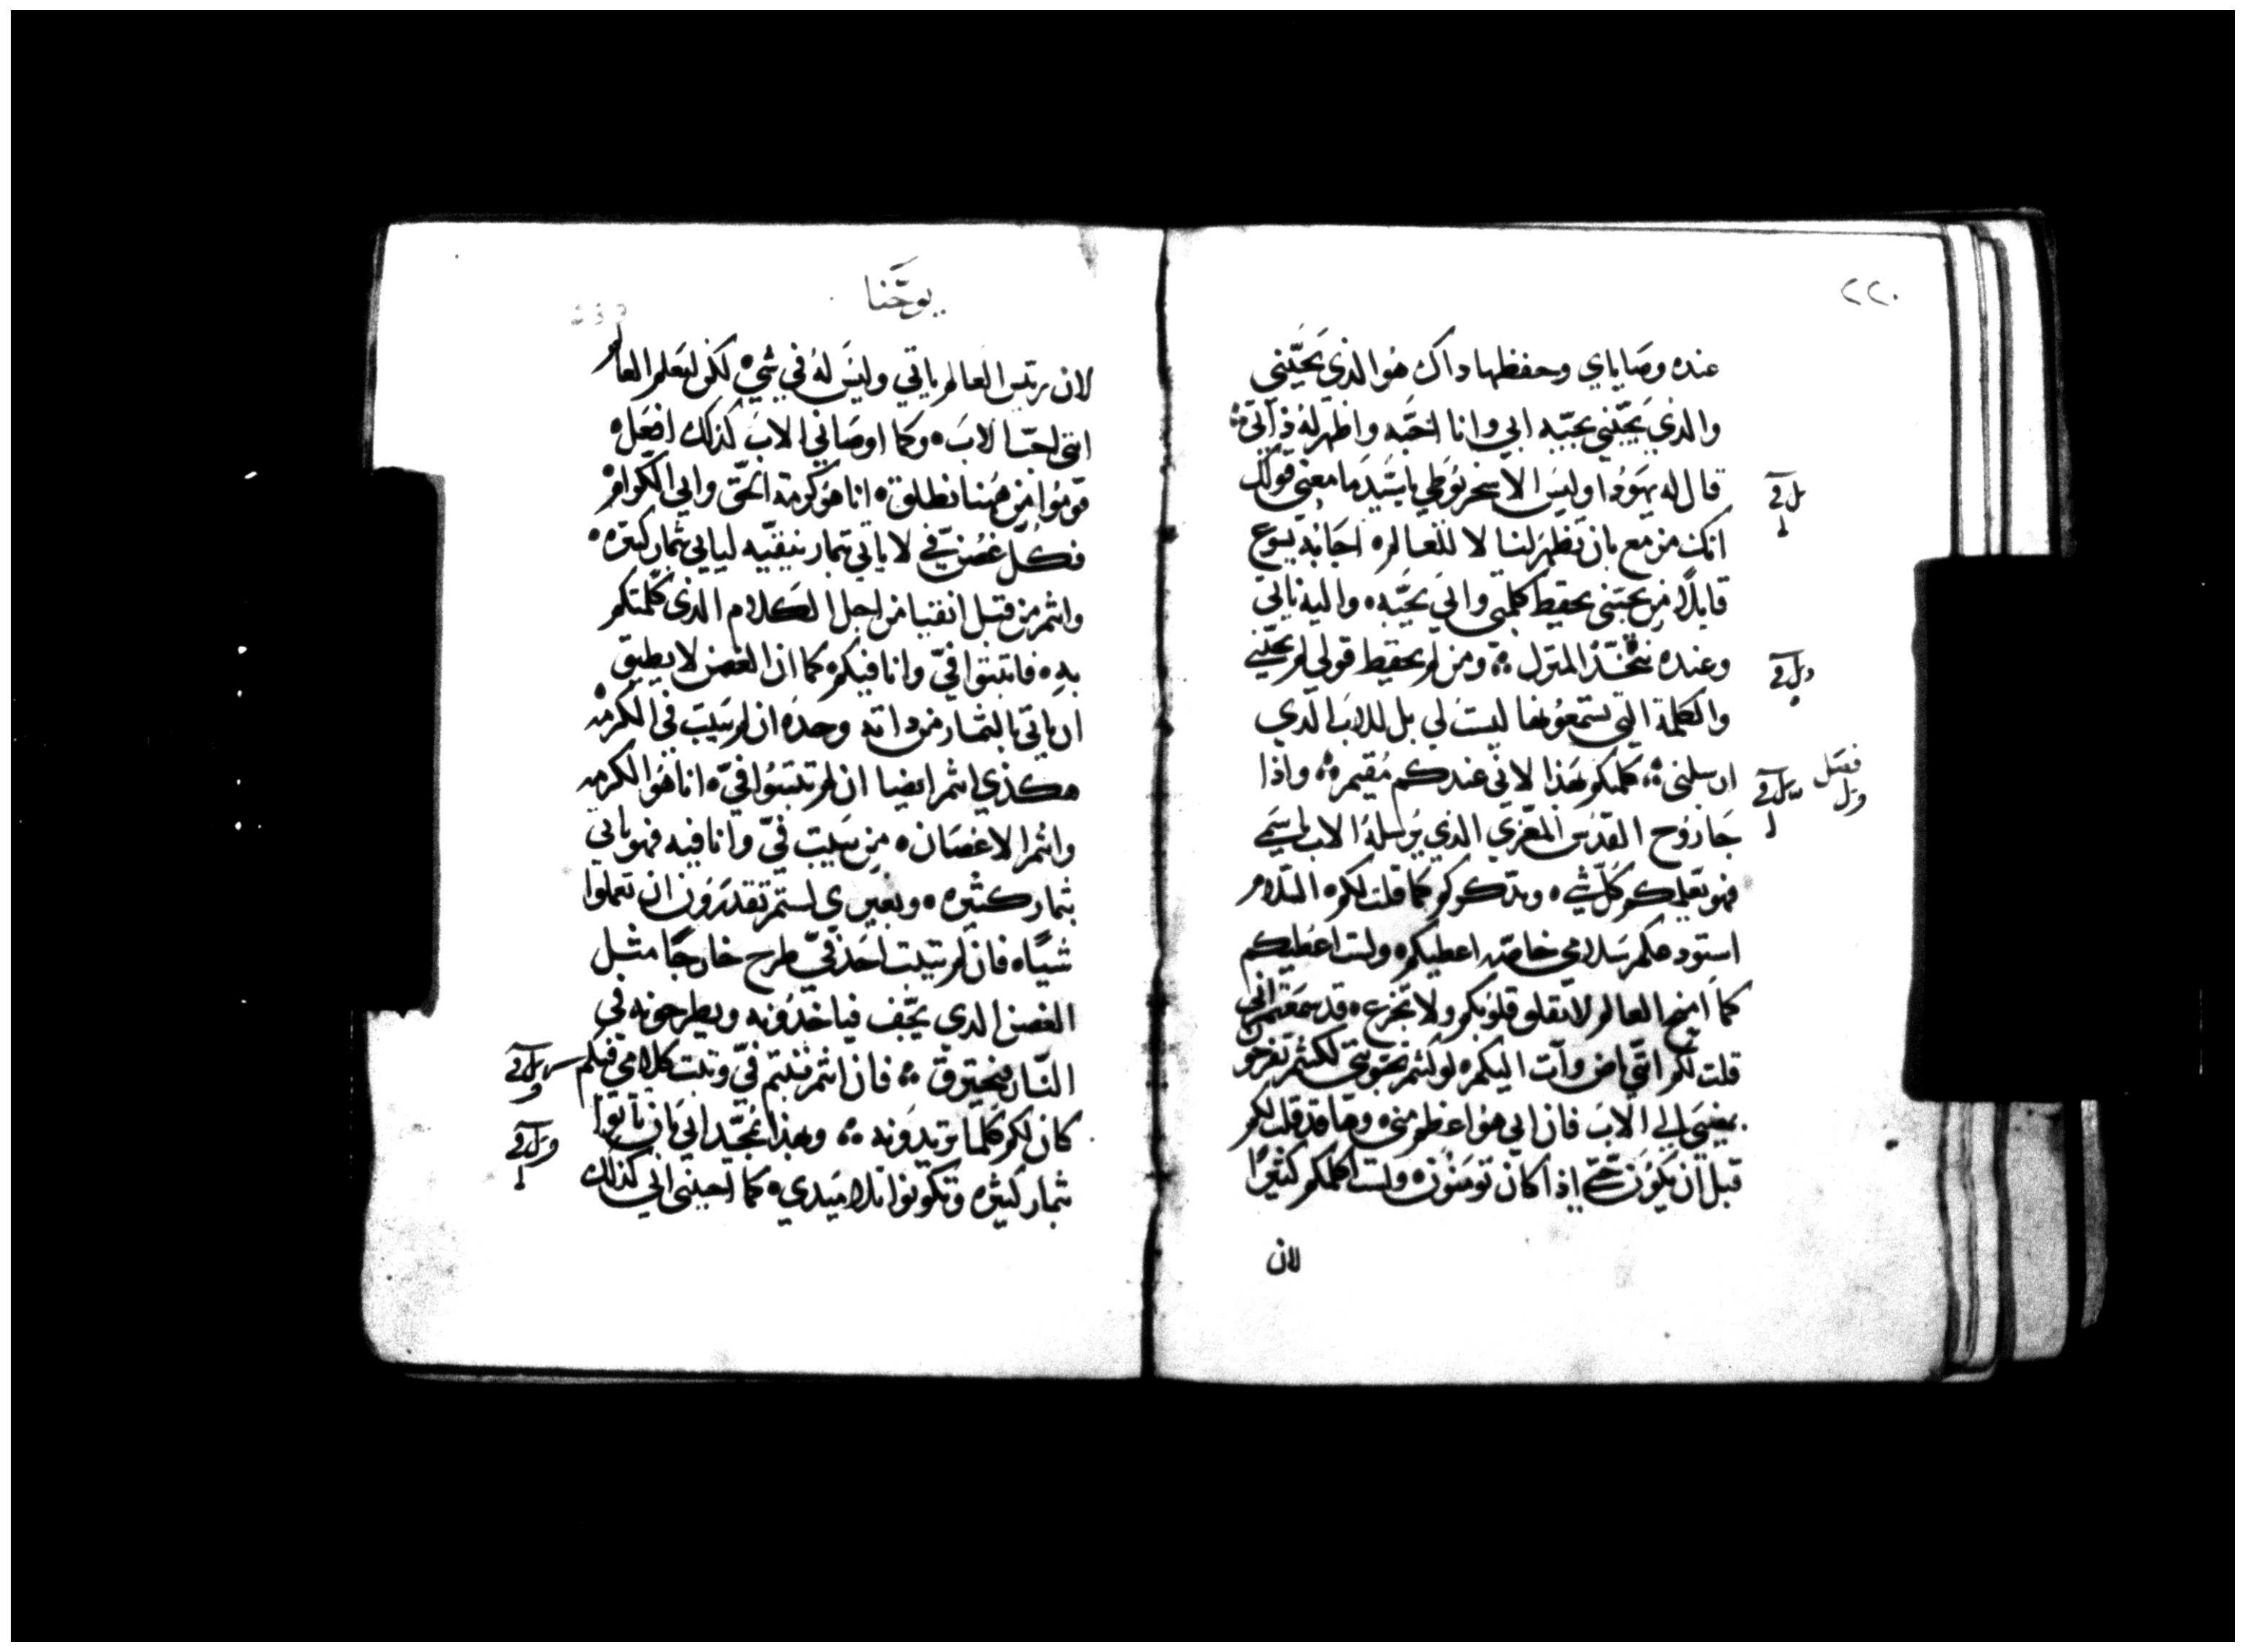 ٢٢٠
عنده وصاياي وحفظها داك هوا لذي يحبّني
والذي يحبّني يحبّه ابي وانا احبّه واظهر له ذاتي
قال له يهودا وليس الاسخريوطي يا سيد ما معني قولك
انك مزمع بان تظهر لنا لا للعالم اجابه يسوع
قايلاً من يحبّني يحفظ كلمتي وابي يحبّه واليه ناتي
وعنده نتّخذ المنزل ومن لم يحفظ قولي لم يحبّني
والكلمة التي تسمعونها ليست لي بل للاب الّدي
ارسلني كلمتكم بهذا لاني عندكم مقيم واذا
فصل
جا روح القدس المعزي الذي يرسله الاب باسمي
فهو يعلمكم كلّ شي ويدكركم كما قلت لكم السّلام
استودعكم سلامي خاصّه اعطيكم ولست اعطيكم
كما امنح العالم لا تقلق قلوبكم ولا تجزع قد سمعتم اني
قلت لكم انّي ماض وآت اليكم لو كنتم تحبّوني لكنتم تفرحو
بمضيي الي الاب فان ابي هوا عظم مني وها قد قلت لكم
قبل ان يكون حتّي اذا كان تومنون ولست اكلمكم كثيرًا
لان
يوحّنا
لان رييس العالم ياتي وليس له في شي لكن ليعلم العالم
انني احبّ الاب وكما اوصاني الاب كذلك افعل
قوموا من ههنا ننطلق انا هو كرمة الحّق وابي الكّرام
فكلّ غصن فّي لا ياتي بثمار ينقّيه لياتي بثمار كثيره
وانتم من قبل انقيا من اجل الكلام الذي كلّمتكم
به فاتبتوا فيّ وانا فيكم كما ان الغصن لا يطيق
ان ياتي بالثمار من داته وحده ان لم يتبت في الكرمه
هكذي انتم ايضا ان لم تتبتوا فيّ انا هوا لكرمه
وانتم الاغصان من يتبت فيّ وانا فيه فهو ياتي
بثمار كثيره وبغيري لستم تقدرون ان تعملوا
شياً فان لم يتبت احد فيّ طرح خارجًا مثل
الغصن الدي يجّف فياخدونه ويطرحونه في
النّار فيحترق فان انتم تبتم فيّ وتبت كلامي فيكم
كان لكم كلما تريدونه وبهذا يمجّد ابي بان تاتوا
بثمار كثيره وتكونوا تلاميدي كما احبّني ابي كذلك